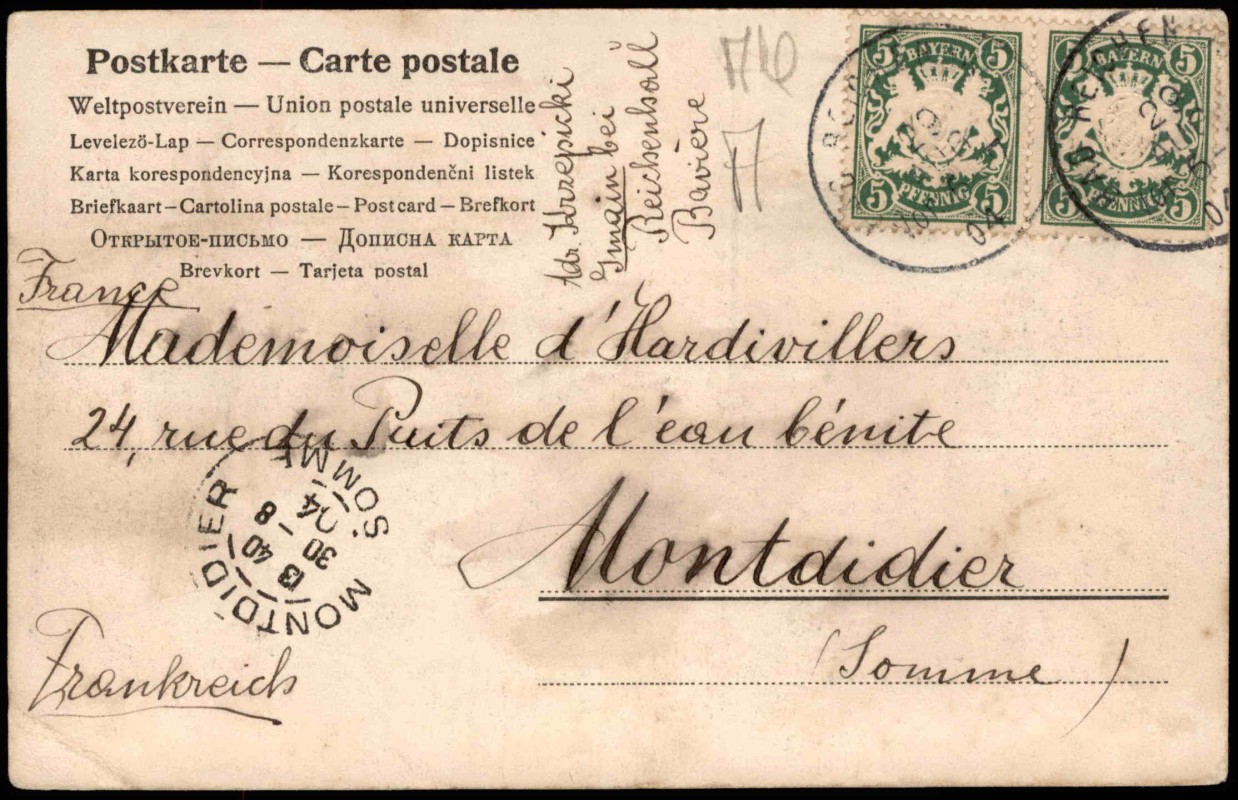 Postkarte — Carte postale
Weltpostverein — Union postale universelle
Levelező-Lap — Correspondenzkarte — Dopisnice
Karta korespondencyjna — Korespondenční listek
Briefkaart – Cartolina postale – Post card – Brefkort
Открытое-письмо — Дописна карта
Brevkort — Tarjeta postal
Adr. Krzepicki
Gmain bei
Reichenhall
Bavière
BAYERN
5 5
5 5
PFENNIG
BAYERN
5 5
5 5
PFENNIG
04
France
Mademoiselle d'Hardivillers
24, rue du Puits de l'eau bénite
Montdidier
(Somme)
Frankreich
MONTDIDIER
SOMME
13 40
30 - 8
04